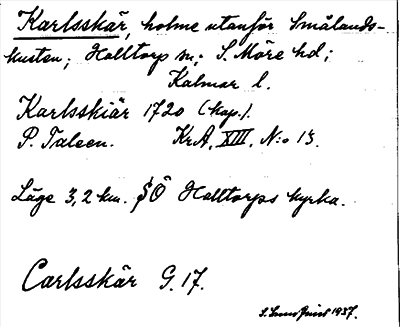 Karlsskär, holme utanför Smålands-
kusten; Halltorp sn; S. Möre hd;
Kalmar l.
Karlsskiär 1720 (kop.).
P. Taleen. KrA, XIII, N:o 13.
Läge 3,2 km. SÖ Halltorps kyrka.
Carlsskär G. 17.
1937.